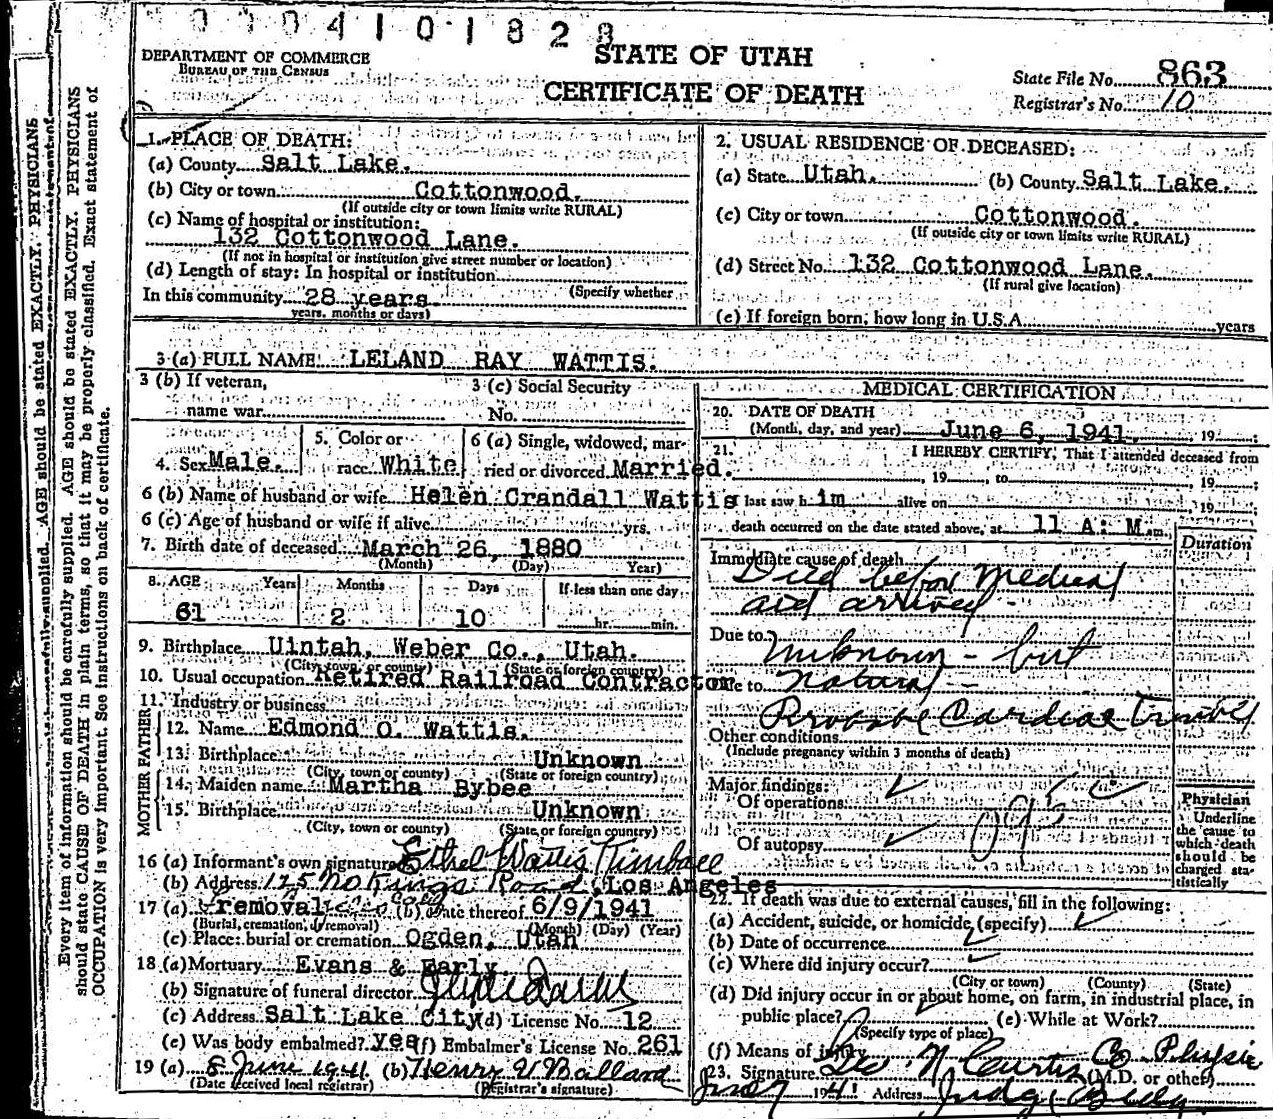 0 0 0 4 1 0 1 8 2 8
DEPARTMENT OF COMMERCE
BUREAU OF THE CENSUS
STATE OF UTAH
CERTIFICATE OF DEATH
State File No. 863
Registrar's No. 10
1. PLACE OF DEATH:
(a) County Salt Lake.
(b) City or town Cottonwood.
(If outside city or town limits write RURAL)
(c) Name of hospital or institution:
132 Cottonwood Lane.
(If not in hospital or institution give street number or location)
(d) Length of stay: In hospital or institution
(Specify whether
In this community 28 years.
years, months or days)
2. USUAL RESIDENCE OF DECEASED:
(a) State Utah. (b) County Salt Lake.
(c) City or town Cottonwood.
(If outside city or town limits write RURAL)
(d) Street No. 132 Cottonwood Lane.
(If rural give location)
(e) If foreign born, how long in U.S.A. years
3 (a) FULL NAME LELAND RAY WATTIS.
3 (b) If veteran,
name war
3 (c) Social Security
No.
4. Sex Male.
5. Color or
race White
6 (a) Single, widowed, mar-
ried or divorced Married.
6 (b) Name of husband or wife Helen Crandall Wattis
6 (c) Age of husband or wife if alive yrs.
7. Birth date of deceased March 26, 1880
(Month) (Day) Year)
8. AGE Years Months Days If less than one day
61 2 10 hr. min.
9. Birthplace Uintah, Weber Co., Utah.
(City, town, or county) (State or foreign country)
10. Usual occupation Retired Railroad Contractor
11. Industry or business
FATHER
12. Name Edmond O. Wattis.
13. Birthplace Unknown
(City, town or county) (State or foreign country)
MOTHER
14. Maiden name Martha Bybee
15. Birthplace Unknown
(City, town or county) (State or foreign country)
16 (a) Informant's own signature Ethel Wattis Kimball
(b) Address 125 No Kings Road, Los Angeles
17 (a) removal (b) Date thereof 6/9/1941
(Burial, cremation, or removal) (Month) (Day) (Year)
(c) Place: burial or cremation Ogden, Utah
18 (a) Mortuary Evans & Early.
(b) Signature of funeral director
(c) Address Salt Lake City (d) License No. 12
(e) Was body embalmed? yes (f) Embalmer's License No. 261
19 (a) 8 June 1941 (b) Henry
(Date received local registrar) (Registrar's signature)
MEDICAL CERTIFICATION
20. DATE OF DEATH
(Month, day, and year) June 6, 1941. 19
21. I HEREBY CERTIFY, That I attended deceased from
, 19 , to , 19 ;
last saw h im alive on , 19 ;
death occurred on the date stated above, at 11 A: M. m.
Duration
Immediate cause of death
Died before Medical
aid arrived -
Due to Unknown - but
Due to Natural -
Cardiac
Other conditions
(Include pregnancy within 3 months of death)
Major findings:
Of operations
Of autopsy
Physician
Underline
the cause to
which death
should be
charged sta-
tistically
22. If death was due to external causes, fill in the following:
(a) Accident, suicide, or homicide (specify)
(b) Date of occurrence
(c) Where did injury occur?
(City or town) (County) (State)
(d) Did injury occur in or about home, on farm, in industrial place, in
public place? (e) While at Work?
(Specify type of place)
(f) Means of injury
23. Signature N Curtis Co Physic
(M.D. or other)
1941 Address
Every item of information should be carefully supplied. AGE should be stated EXACTLY. PHYSICIANS
should state CAUSE OF DEATH in plain terms, so that it may be properly classified. Exact statement of
OCCUPATION is very important. See instructions on back of certificate.